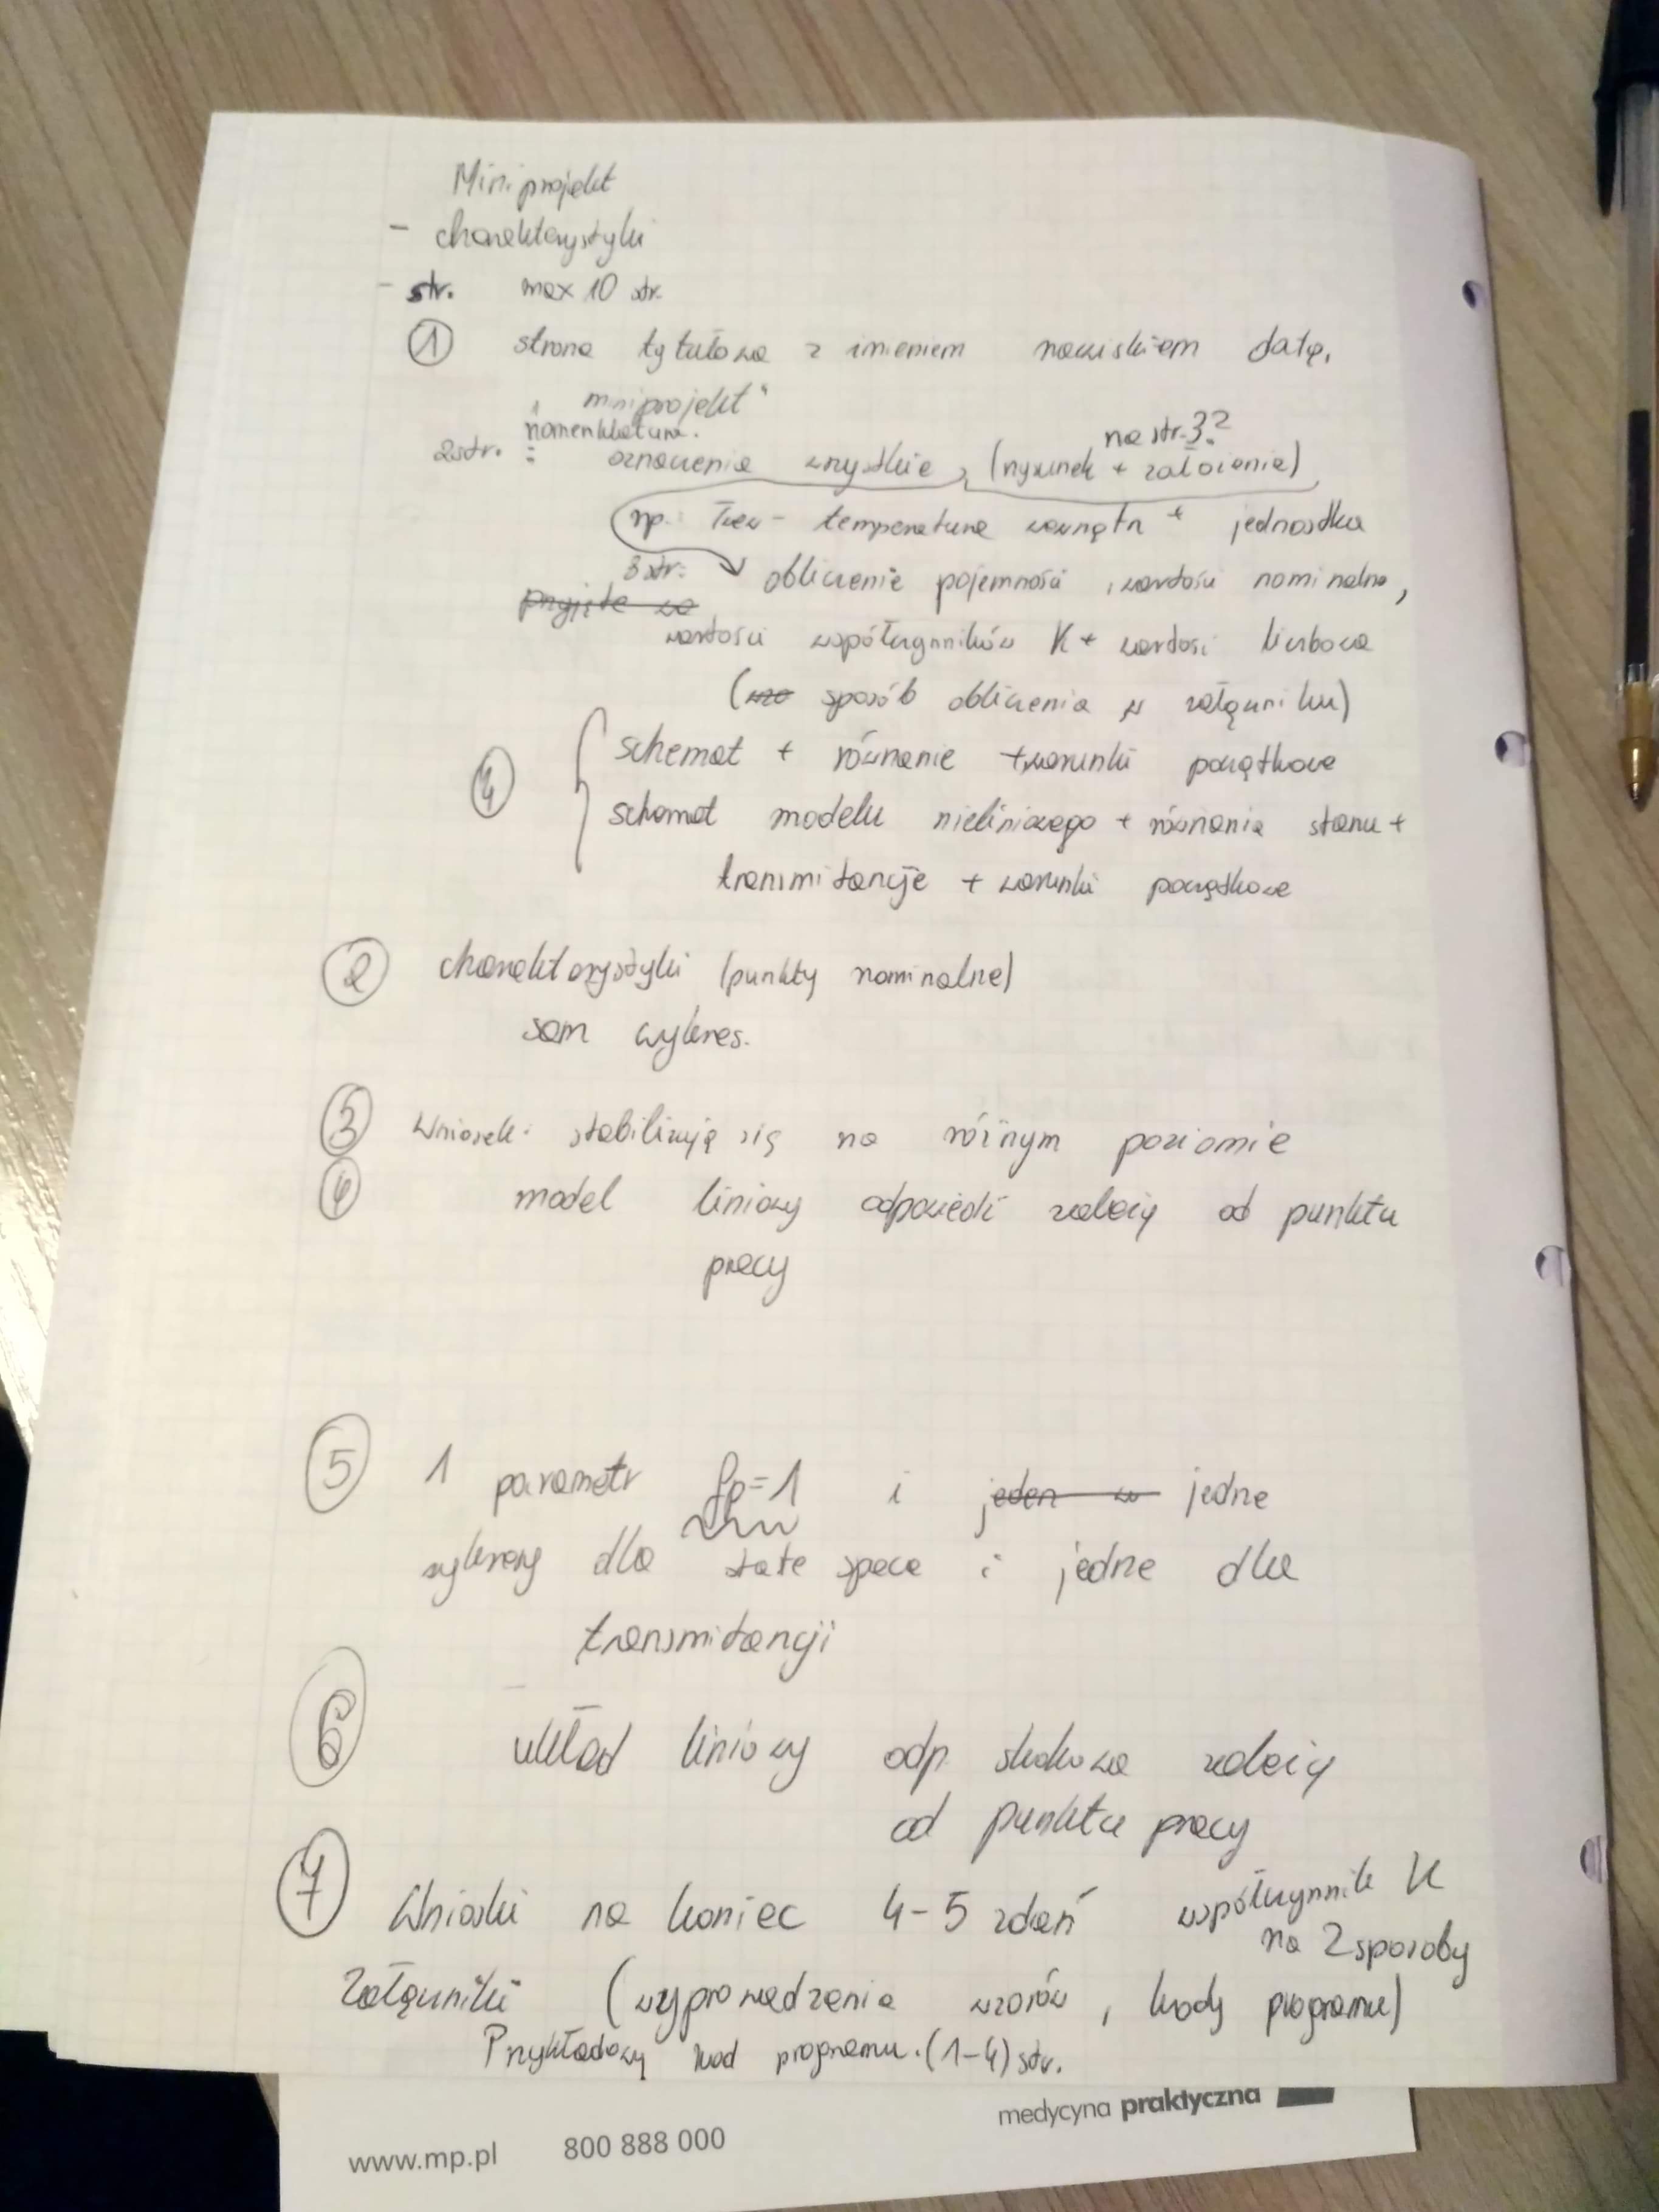 Miniprojekt
- charakterystyki
- str. max 10 str.
① strona tytułowa z imieniem nazwiskiem datą,
"miniprojekt"
nomenklatura.
na str. 3?
2str. : oznaczenia wszystkie, (rysunek + założenia)
np. Twew - temperatura wewnątrz + jednostka
3 str. obliczenie pojemności, wartości nominalne,
przyjęte wa
wartości współczynników K + wartość liczbowa
(wzo sposób obliczenia w załączniku)
④ schemat + równanie + warunki początkowe
schemat modelu nieliniowego + równania stanu +
transmitancje + warunki początkowe
② charakterystyki (punkty nominalne)
sam wykres.
③ Wniosek: stabilizują się na różnym poziomie
④ model liniowy odpowiedź zależy od punktu
pracy
⑤ 1 parametr fp=1 i jeden w jedne
wykresy dla state space i jedne dla
transmitancji
⑥ układ liniowy odp. skokowa zależy
od punktu pracy
⑦ Wnioski na koniec 4-5 zdań współczynnik K
na 2 sposoby
Załączniki (wyprowadzenia wzorów, kody programu)
Przykładowy kod programu. (1-4) str.
medycyna praktyczna
www.mp.pl 800 888 000